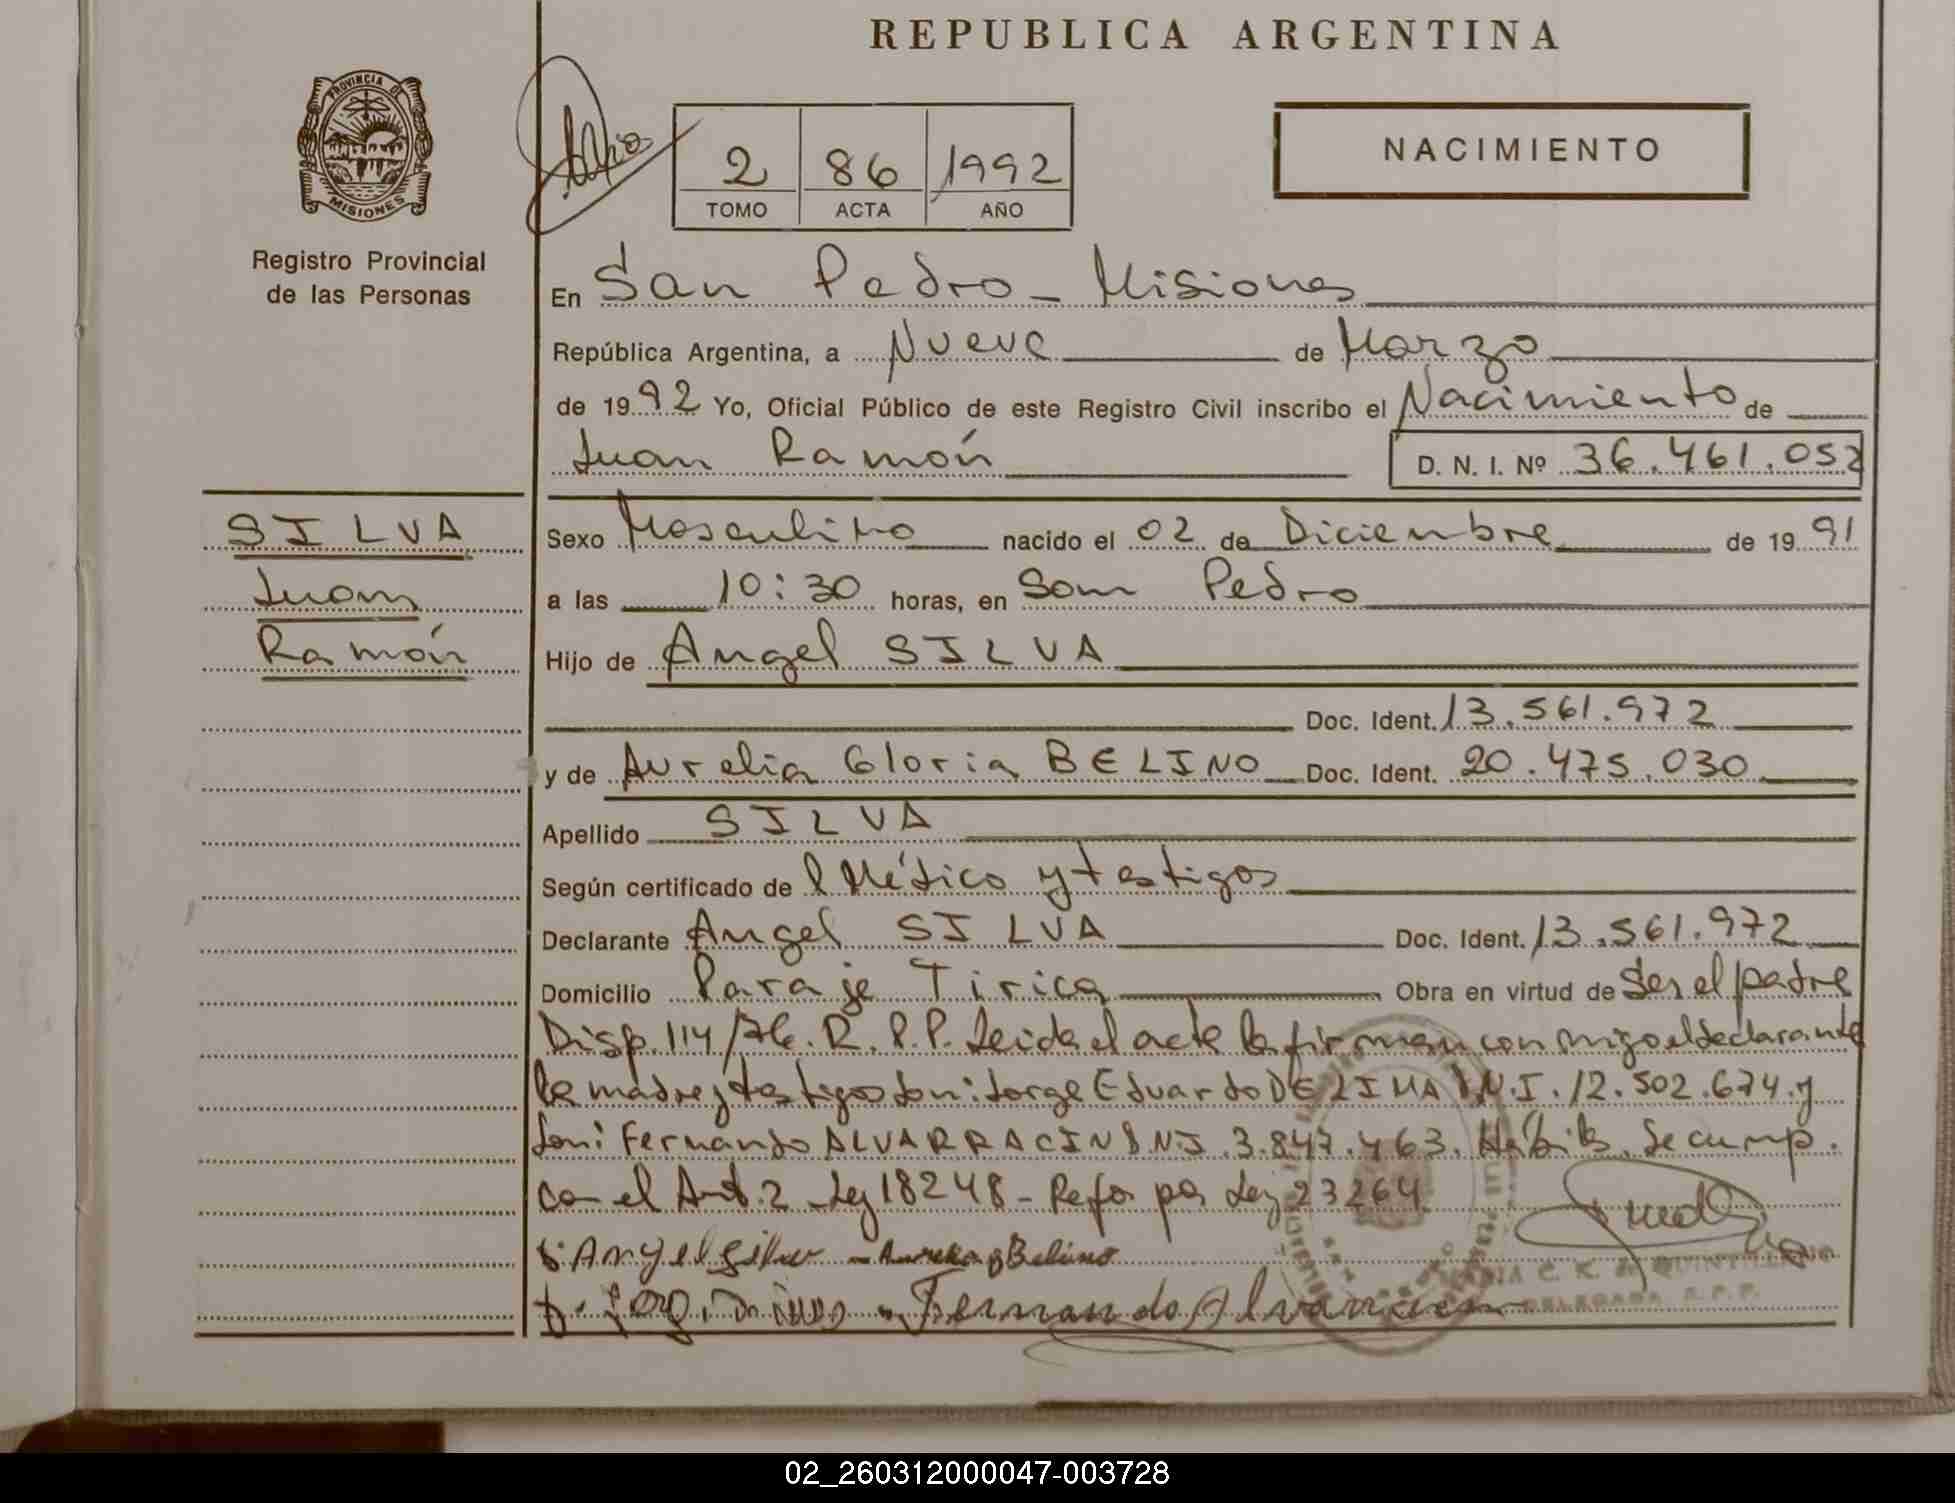 REPUBLICA ARGENTINA
PROVINCIA DE
MISIONES
Registro Provincial
de las Personas
2 86 1992
TOMO ACTA AÑO
NACIMIENTO
En San Pedro - Misiones
República Argentina, a Nueve de Marzo
de 1992 Yo, Oficial Público de este Registro Civil inscribo el Nacimiento de
Juan Ramón D. N. I. Nº 36.461.052
SILVA
Juan
Ramón
Sexo Masculino nacido el 02 de Diciembre de 1991
a las 10:30 horas, en San Pedro
Hijo de Angel SILVA
Doc. Ident. 13.561.972
y de Aurelia Gloria BELINO Doc. Ident. 20.475.030
Apellido SILVA
Según certificado de l Médico y testigos
Declarante Angel SILVA Doc. Ident. 13.561.972
Domicilio Paraje Tirica Obra en virtud de Ser el padre
Disp. 114/76. R.P.P. Leida el acta la firman conmigo el declarante
la madre y testigos Son: Jorge Eduardo DE LIMA D.N.I. 12.502.674. y
Fernando ALVARRACIN D.N.I. 3.847.463. Se cump.
con el Art. 2 Ley 18248 - Refor por Ley 23264.
Angel Silva - Aurelia g Belino
Fernando Alvarracin
C. K. de QUINTILLANO
DELEGADA R.P.P.
02_260312000047-003728